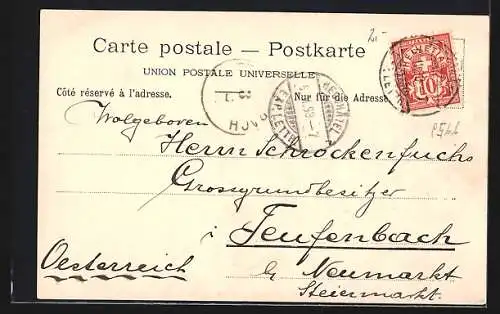 2.-
Carte postale — Postkarte
UNION POSTALE UNIVERSELLE
Côté réservé à l'adresse. Nur für die Adresse
HELVETIA
10
NEUCHATEL
Wolgeboren
Herrn Schrockenfuchs
Grossgrundbesitzer
i Teufenbach
b/ Neumarkt
Oesterreich
Steiermarkt.